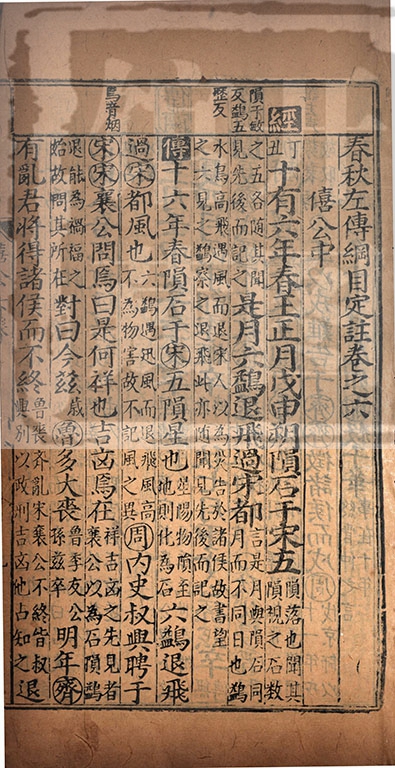 春秋左傳綱目定註卷之六
僖公中
隕于敏
反鷁五
歷反
經丁丑十有六年春王正月戊申朔隕石于宋五隕落也聞其隕視之石數
之五各隨其聞見先後而記之是月六鷁退飛過宋都言是月與隕石同月而不同日也鷁
水鳥高飛遇風而退宋人以為災告於諸侯故書望之六見之鷁察之退飛此亦隨聞見先後而記之
傳十六年春隕石于宋五隕星也星陽物墜至地則化為石六鷁退飛
過宋都風也六鷁遇迅風而退飛風高不為物害故不記風之異周內史叔興聘于
焉音烟
宋宋襄公問焉曰是何祥也吉凶焉在祥吉凶之先見者襄公以為石隕鷁
退能為禍福之始故問其所在對曰今茲歲魯多大喪魯季友公孫茲卒明年齊
有亂君將得諸侯而不終魯喪齊亂宋襄公不終皆叔興別以政刑吉凶他占知之退